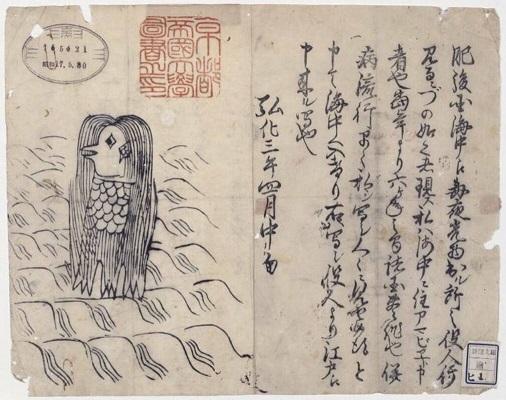 肥後国海中江毎夜光物出ル所之役人行
見るニづの如之者現ス私ハ海中ニ住アマビヱト申
者也当年より六ヶ年之間諸国豊作也併
病流行早々私シ写シ人々ニ見セ候得と
申て海中へ入けり右写シ役人より江戸江
申来ル写也
弘化三年四月中旬
京都
帝國大學
圖書之印